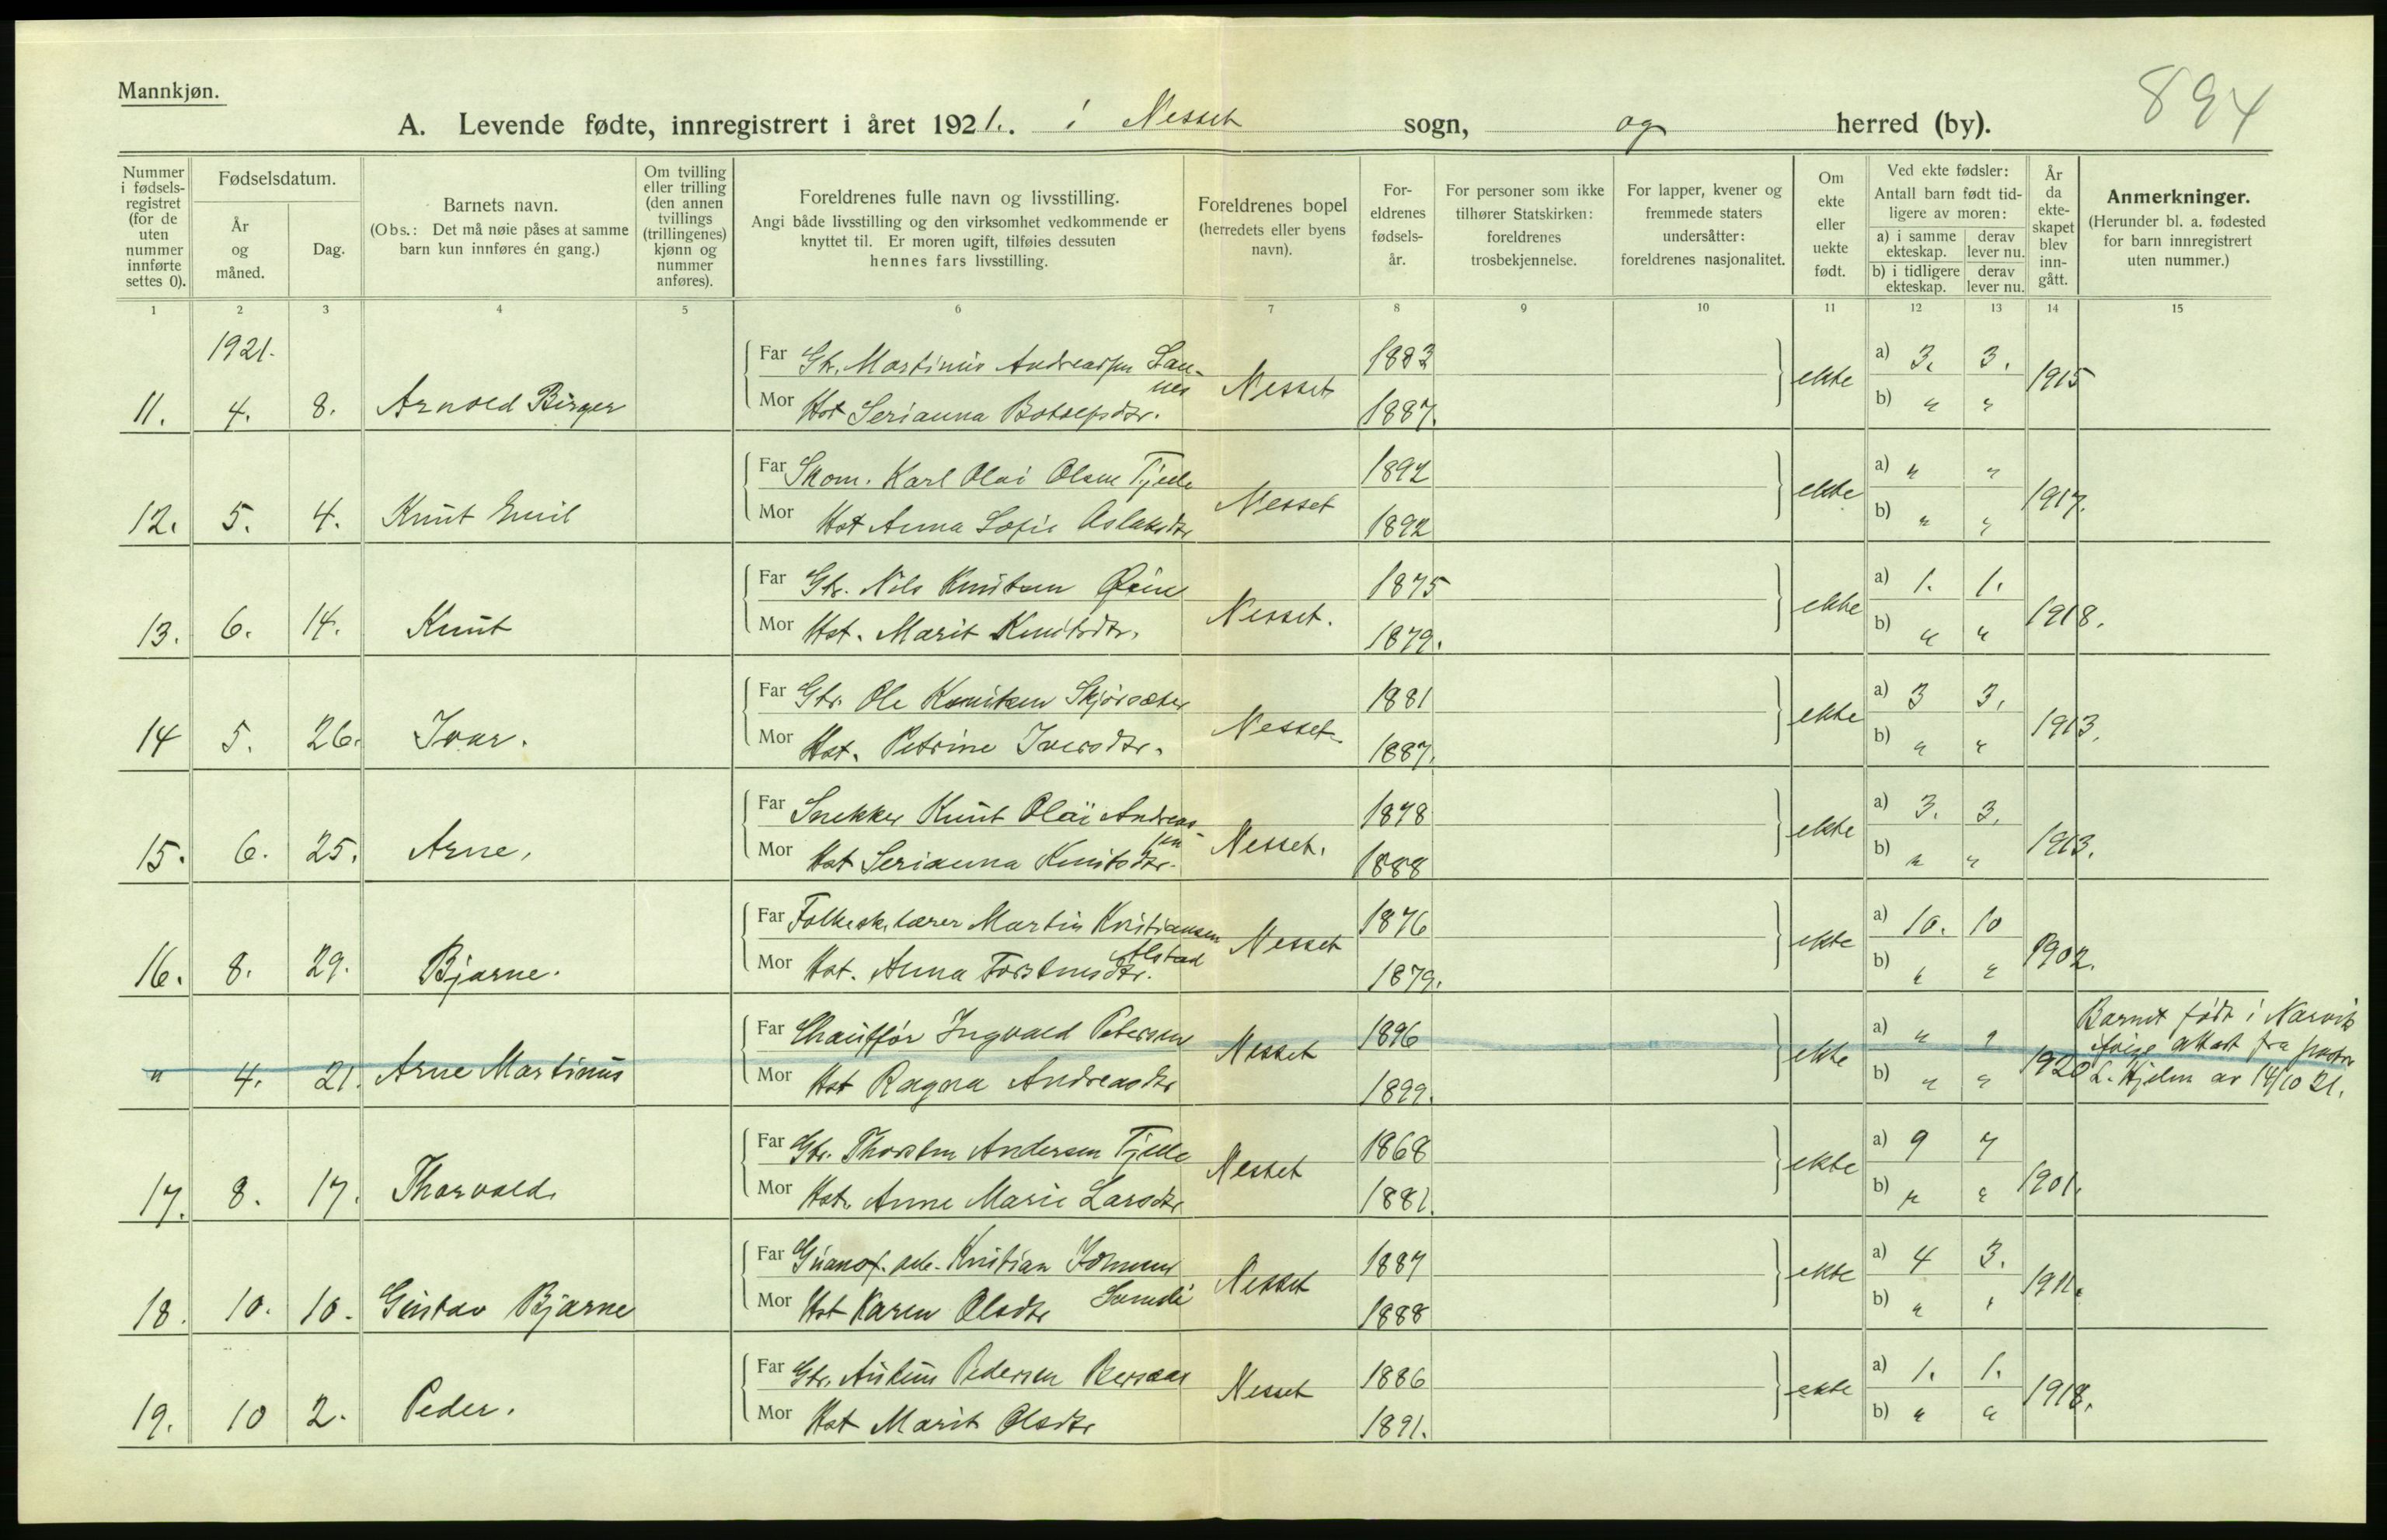 Mannkjøn.
894
A. Levende fødte, innregistrert i året 1921. i Nesset sogn, og herred (by).
Nummer i fødselsregistret (for de uten nummer innførte settes 0).
Fødselsdatum.
År og måned.
Dag.
Barnets navn.
(Obs.: Det må nøie påses at samme barn kun innføres én gang.)
Om tvilling eller trilling (den annen tvillings (trillingenes) kjønn og nummer anføres).
Foreldrenes fulle navn og livsstilling.
Angi både livsstilling og den virksomhet vedkommende er knyttet til. Er moren ugift, tilføies dessuten hennes fars livsstilling.
Foreldrenes bopel (herredets eller byens navn).
Foreldrenes fødselsår.
For personer som ikke tilhører Statskirken: foreldrenes trosbekjennelse.
For lapper, kvener og fremmede staters undersåtter: foreldrenes nasjonalitet.
Om ekte eller uekte født.
Ved ekte fødsler:
Antall barn født tidligere av moren:
a) i samme ekteskap. derav lever nu.
b) i tidligere ekteskap. derav lever nu.
År da ekteskapet blev inngått.
Anmerkninger.
(Herunder bl. a. fødested for barn innregistrert uten nummer.)
1 2 3 4 5 6 7 8 9 10 11 12 13 14 15
1921.
11. 4. 8. Arnold Birger
Far Gbr. Martinus Andreassen 1883 a) 3. 3.
Mor Hst Serianna 1887. b) " "
Nesset ekte 1915
12. 5. 4. Knut Emil
Far Skom. Karl Olai Olsen Tjelle 1892 a) " "
Mor Hst Anna Sofie Aslaksdtr 1892 b) " "
Nesset ekte 1917.
13. 6. 14. Knut
Far Gbr. Nils Knutsen Øien 1875 a) 1. 1.
Mor Hst. Marit Knutsdtr. 1879. b) " "
Nesset. ekte 1918.
14 5. 26. Ivar.
Far Gbr. Ole Knutsen Skjørsæter 1881 a) 3 3.
Mor Hst. Petrine Iversdtr. 1887. b) " "
Nesset. ekte 1913.
15. 6. 25. Arne.
Far Snekker Knut Olai Andreassen 1878 a) 3. 3.
Mor Hst Serianna Knutsdtr. 1888 b) " "
Nesset. ekte 1913.
16. 8. 29. Bjarne.
Far Folkesk. lærer Martin Kristiansen Alstad 1876 a) 10. 10
Mor Hst. Anna Torstensdtr. 1879. b) " "
Nesset ekte 1902.
" 4. 21. Arne Martinus
Far Chauffør Ingvald Petersen 1896 a) " "
Mor Hst Ragna Andreasdtr 1899. b) " "
Nesset ekte 1920
Barnet født i Narvik
ifølge attest fra pastor
L. Hjelm av 14/10 21.
17. 8. 17. Thorvald.
Far Gbr. Thorsten Andersen Tjelle 1868 a) 9 7
Mor Hst. Anne Marie Larsdtr 1881. b) " "
Nesset ekte 1901.
18. 10. 10. Gustav Bjarne
Far Kristian Johnsen 1887 a) 4 3.
Mor Hst Karen Olsdtr 1888 b) " "
Nesset ekte 1911.
19. 10 2. Peder.
Far Gbr. Pedersen 1886 a) 1. 1.
Mor Hst Marit Olsdtr 1891. b) " "
Nesset ekte 1918.